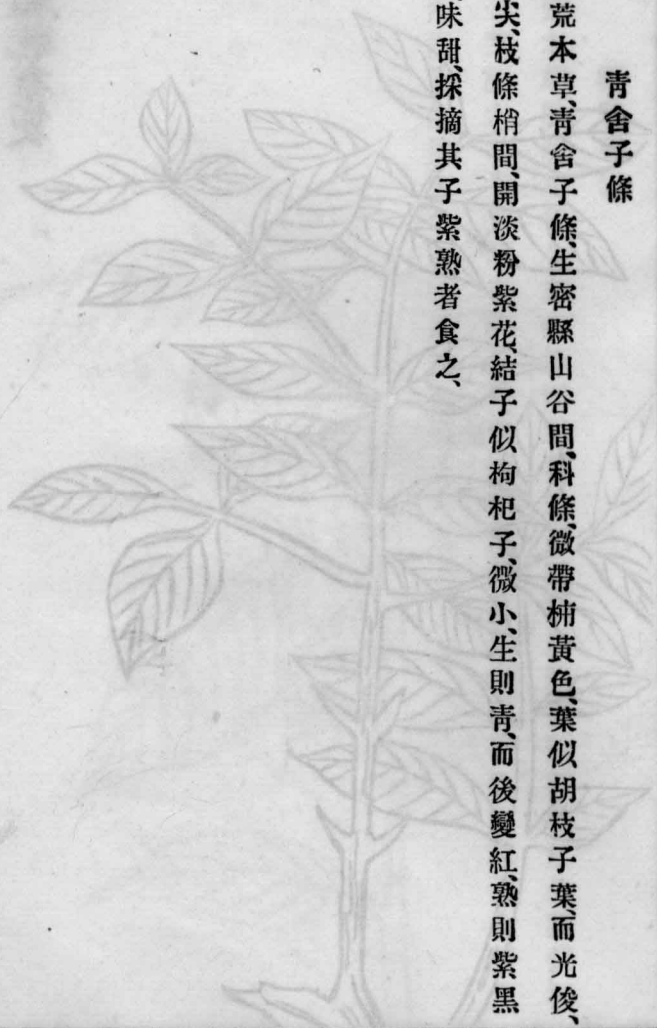 青舍子條
荒本草、青舍子條、生密縣山谷間、科條、微帶柿黃色、葉似胡枝子葉、而光俊、
尖、枝條梢間、開淡粉紫花、結子似枸杞子、微小、生則青、而後變紅、熟則紫黑
味甜、採摘其子紫熟者食之、